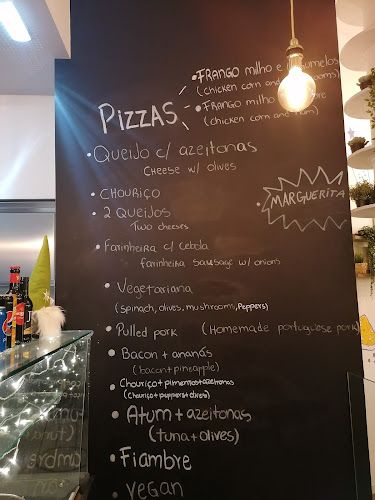 PIZZAS
• FRANGO milho e
(chicken corn and
• FRANGO milho
(chicken corn and ham)
• QUEIJO c/ azeitonas
CHEESE w/ OLIVES
• CHOURIÇO
• MARGUERITA
• 2 QUEIJOS
TWO cheeses
• Farinheira c/ cebola
farinheira sausage w/ onions
• Vegetariana
(spinach, olives, mushrooms, Peppers)
• Pulled pork (Homemade portuguese pork)
• Bacon + ananás
(bacon + pineapple)
• Chouriço + pimentos + azeitonas
(Chouriço + peppers +
• Atum + azeitonas
(tuna + olives)
• Fiambre
• vegan